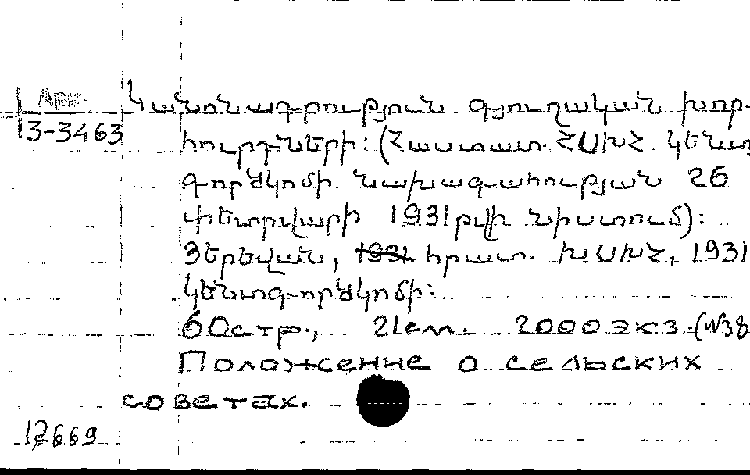 Կանոնադրություն գյուղական խոր-
3-3463
հուրդների: (Հաստատ. ՀՍԽՀ կենտ
գործկոմի նախագահության 26
փետրվարի 1931 թվի նիստում):
Յերեվան, հրատ. ԽՍԽՀ, 1931
կենտգործկոմի:
60стр., 21см. 2000экз. (№38
Положение о сельских
советах.
12669